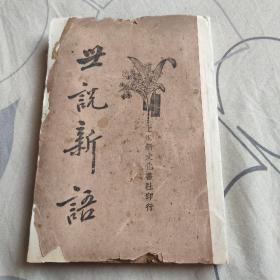 世説新語
上海新文化書社印行